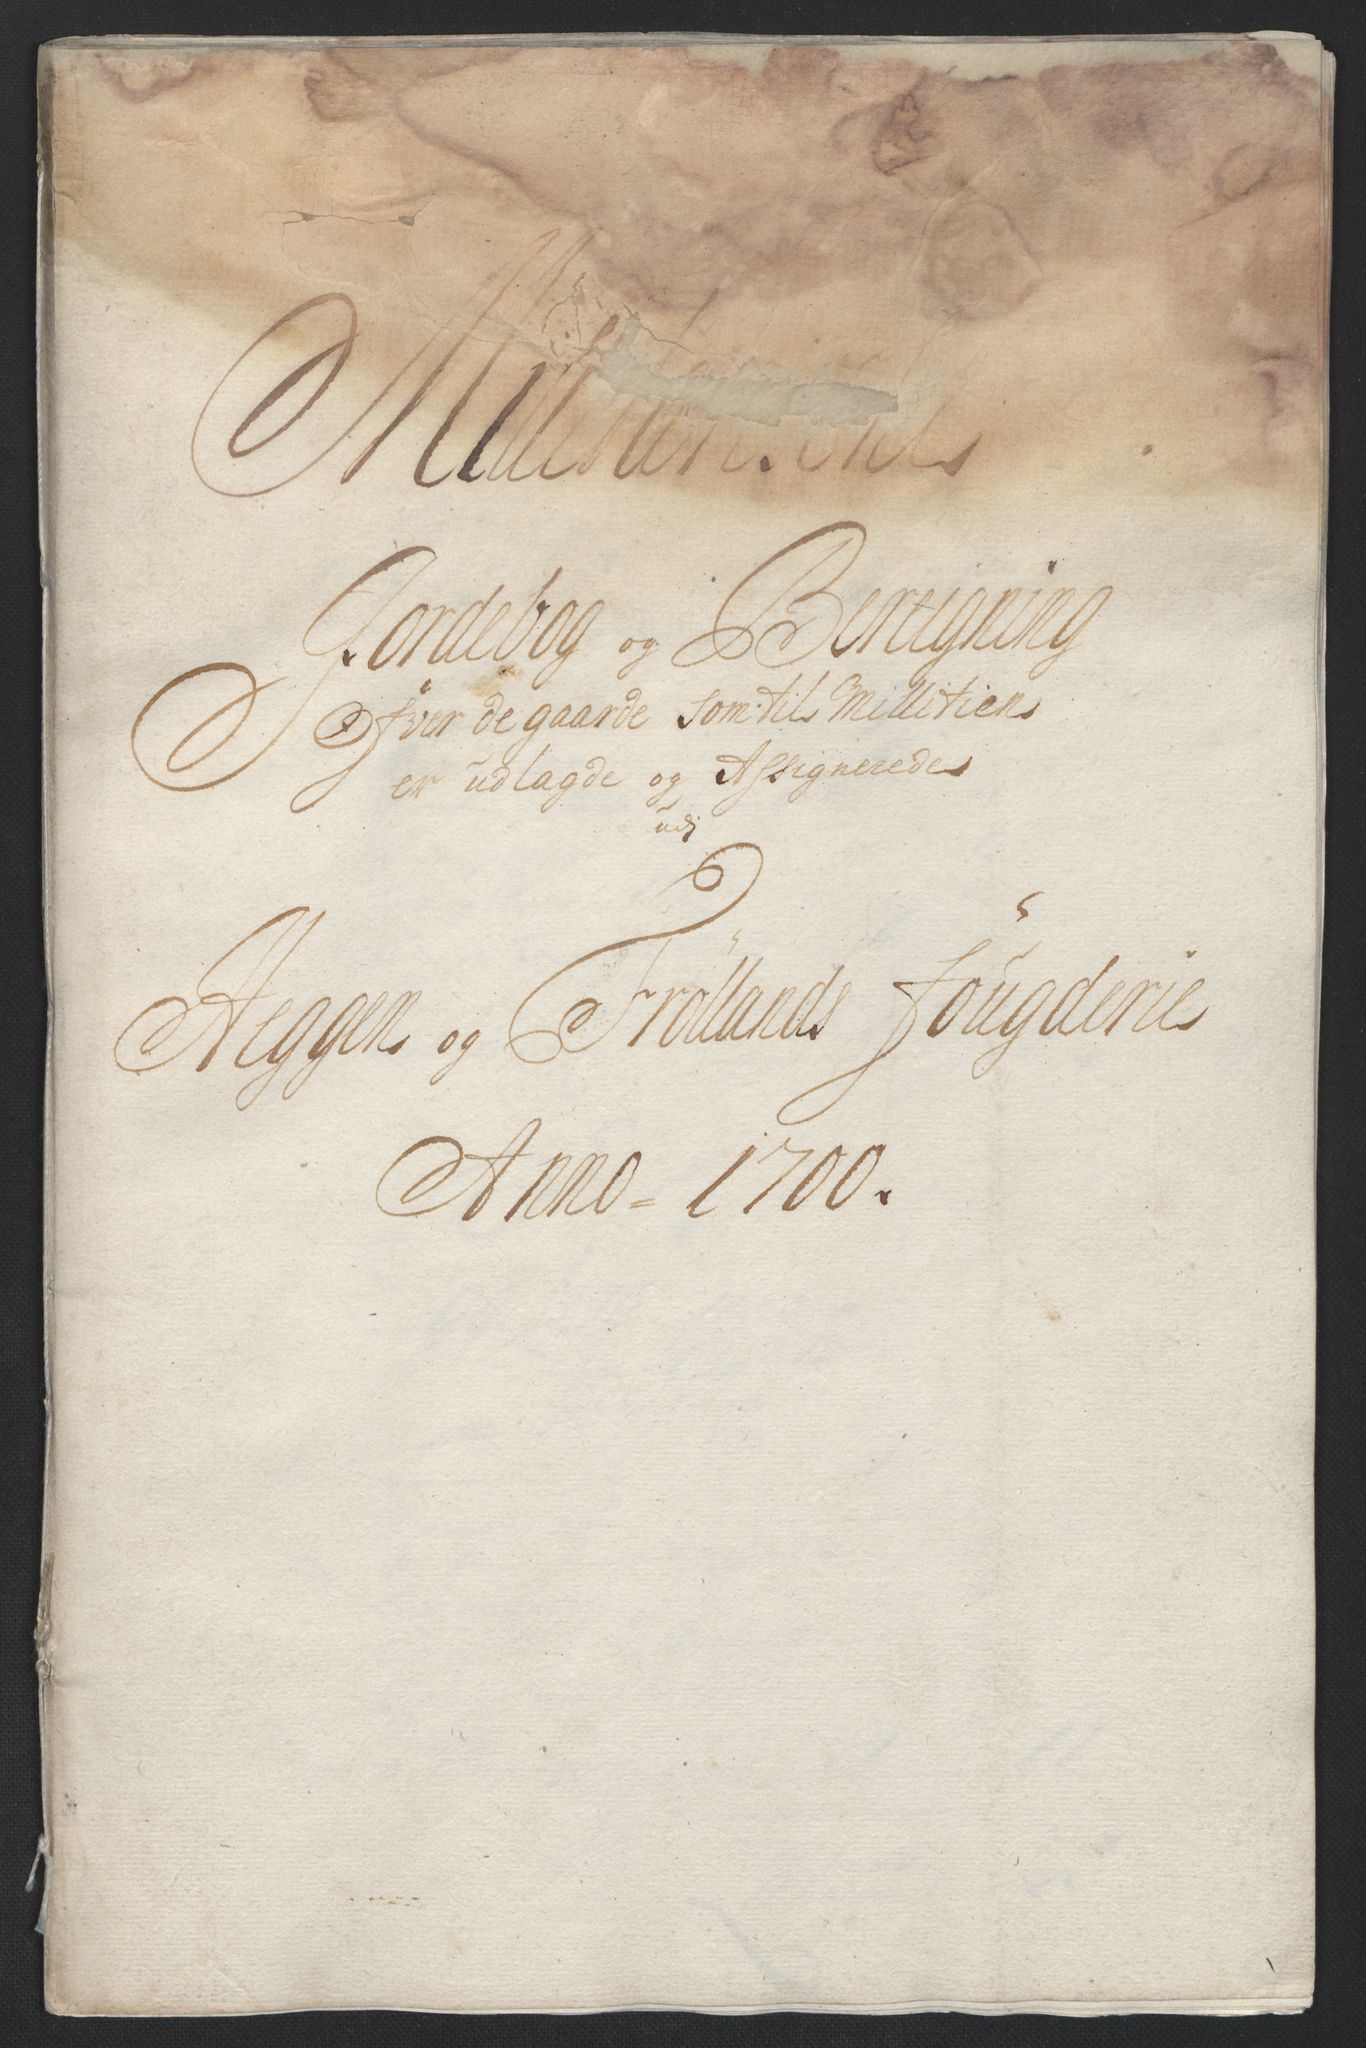 Jordebog og Bereigning
Över de gaarde som til Millitien
er udlagde og Assignerede
udj
Heggen og Fröllands Fougderie
Anno = 1700.